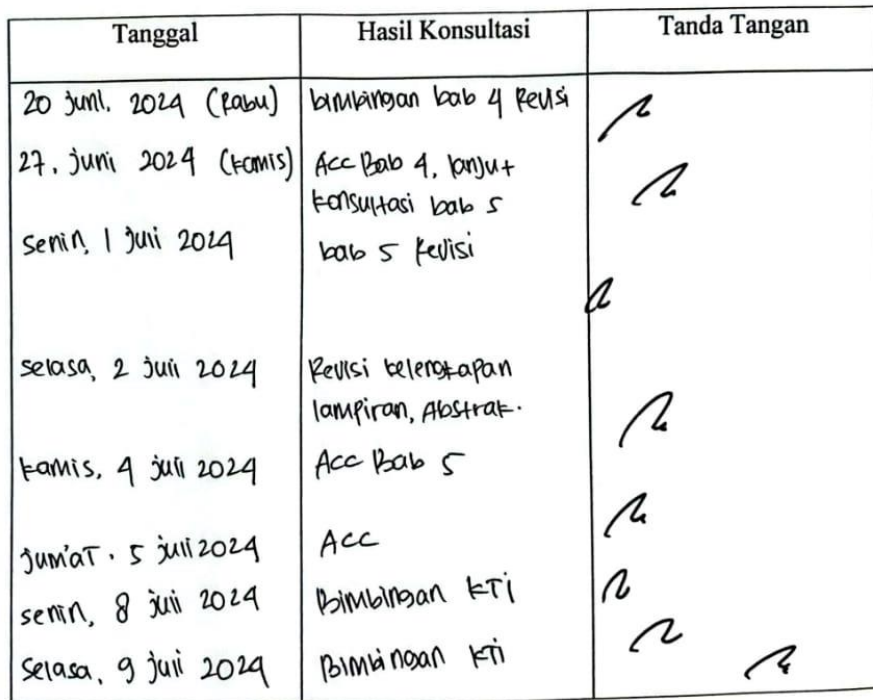 Tanggal Hasil Konsultasi Tanda Tangan
20 Juni. 2024 (Rabu) bimbingan bab 4 Revisi
27. Juni 2024 (kamis) Acc Bab 4, lanjut
konsultasi bab 5
Senin, 1 Juli 2024 bab 5 Revisi
Selasa, 2 Juli 2024 Revisi kelengkapan
lampiran, Abstrak.
kamis, 4 Juli 2024 Acc Bab 5
Jum'aT. 5 Juli 2024 ACC
senin, 8 Juli 2024 Bimbingan KTi
Selasa, 9 Juli 2024 Bimbingan KTi